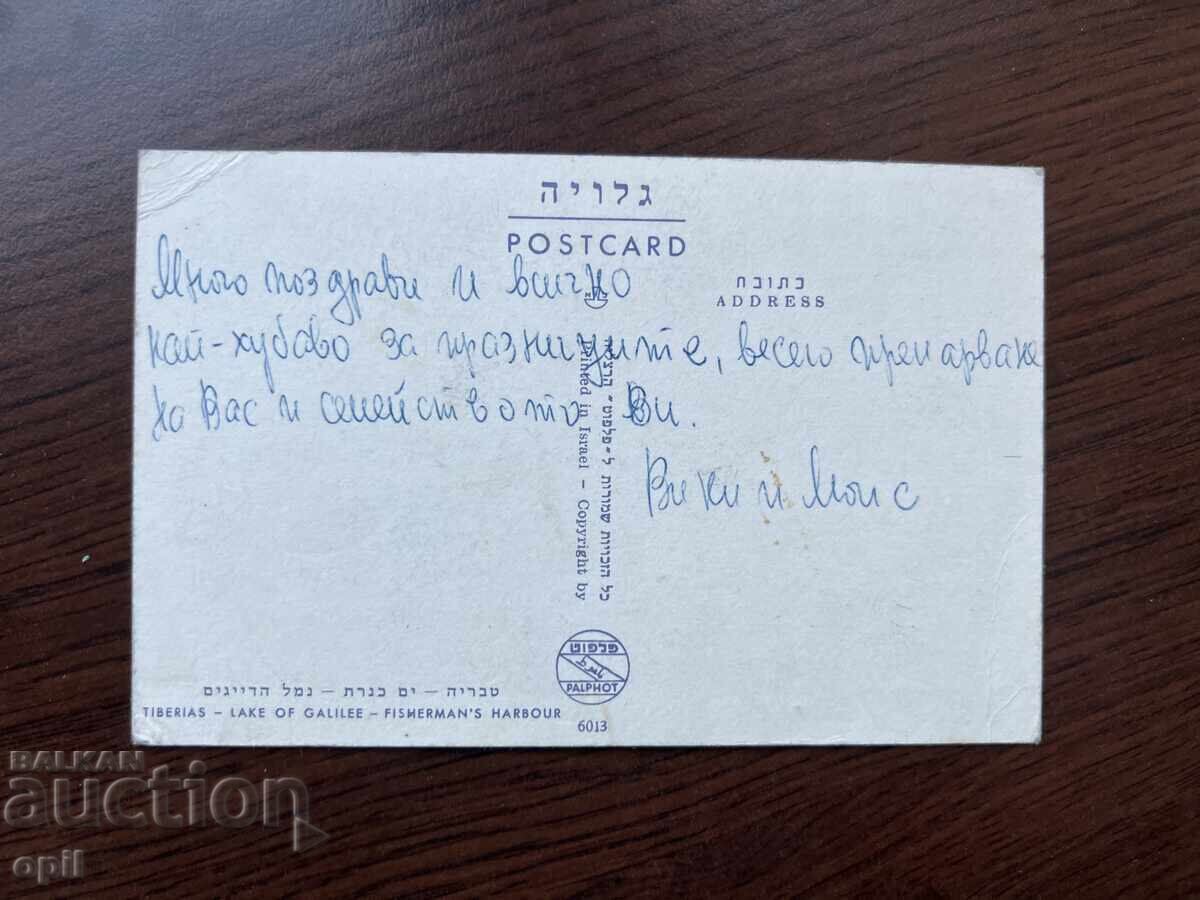 גלויה
POSTCARD
כתובת
ADDRESS
Много поздрави и всичко
най-хубаво за празниците, весело прекарване
на Вас и семейството Ви.
Вики и Моис
Printed in Israel – Copyright by
כל הזכויות שמורות ל"פלפוט"
פלפוט
PALPHOT
6013
טבריה – ים כנרת – נמל הדייגים
TIBERIAS – LAKE OF GALILEE – FISHERMAN'S HARBOUR
BALKAN
auction
opil